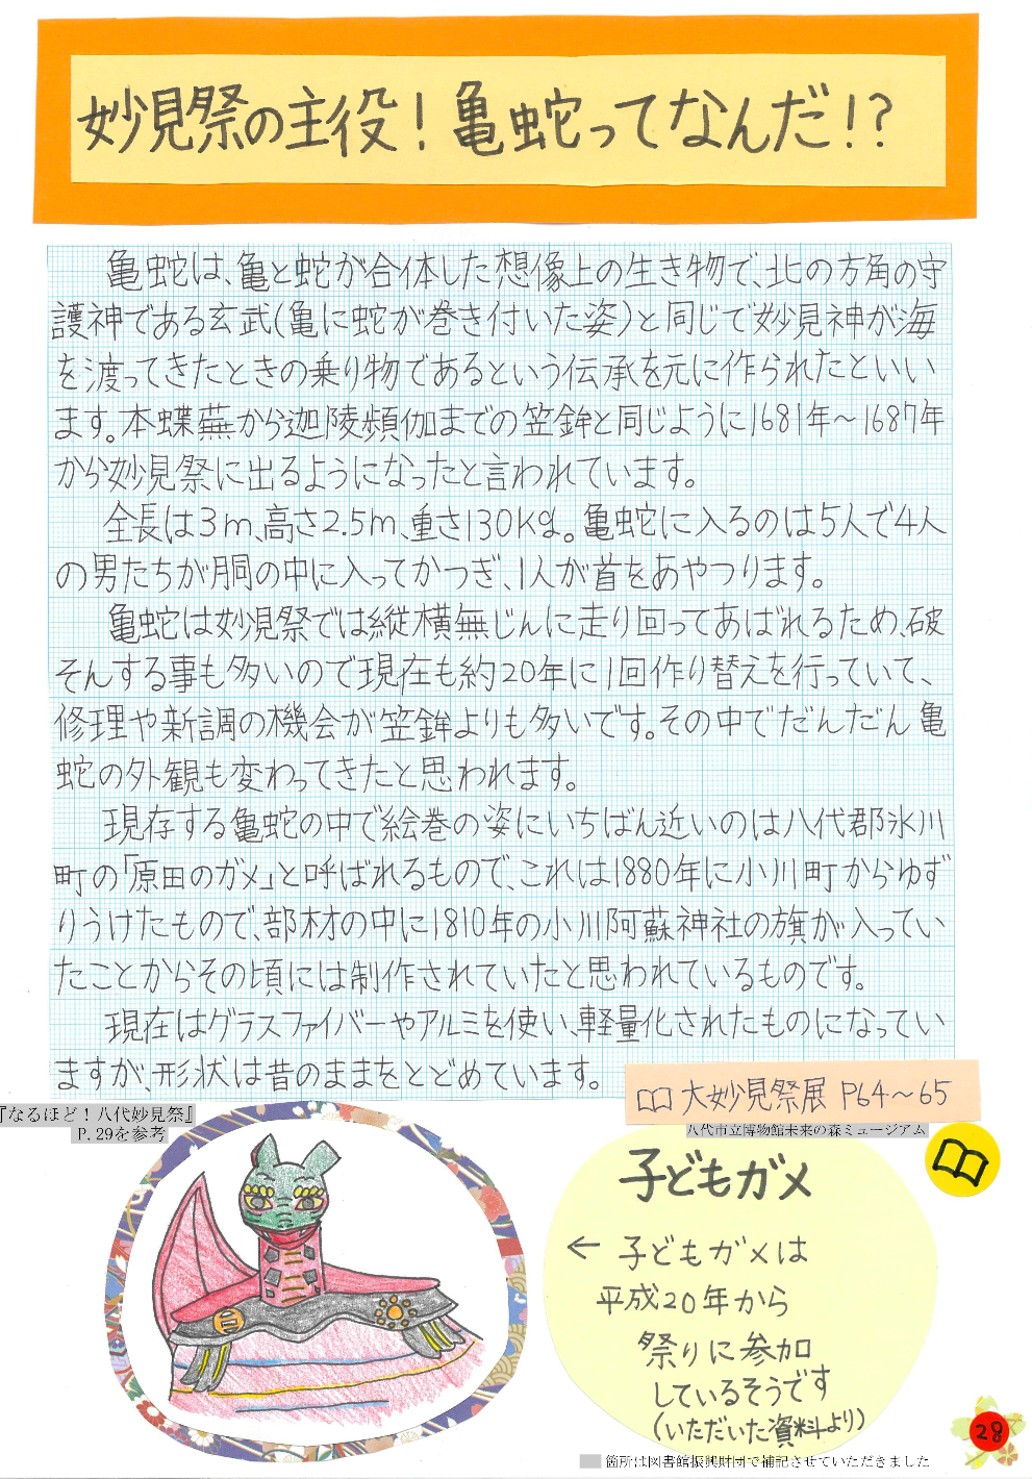 妙見祭の主役！亀蛇ってなんだ！？
亀蛇は、亀と蛇が合体した想像上の生き物で、北の方角の守
護神である玄武(亀に蛇が巻き付いた姿)と同じで妙見神が海
を渡ってきたときの乗り物であるという伝承を元に作られたといい
ます。本蝶蕪から迦陵頻伽までの笠鉾と同じように1681年〜1687年
から妙見祭に出るようになったと言われています。
全長は3m、高さ2.5m、重さ130Kg。亀蛇に入るのは5人で4人
の男たちが胴の中に入ってかつぎ、1人が首をあやつります。
亀蛇は妙見祭では縦横無じんに走り回ってあばれるため、破
そんする事も多いので現在も約20年に1回作り替えを行っていて、
修理や新調の機会が笠鉾よりも多いです。その中でだんだん亀
蛇の外観も変わってきたと思われます。
現存する亀蛇の中で絵巻の姿にいちばん近いのは八代郡氷川
町の「原田のガメ」と呼ばれるもので、これは1880年に小川町からゆず
りうけたもので、部材の中に1810年の小川阿蘇神社の旗が入ってい
たことからその頃には制作されていたと思われているものです。
現在はグラスファイバーやアルミを使い、軽量化されたものになってい
ますが、形状は昔のままをとどめています。
大妙見祭展 P64〜65
八代市立博物館未来の森ミュージアム
『なるほど！八代妙見祭』
P.29を参考
子どもガメ
← 子どもガメは
平成20年から
祭りに参加
しているそうです
(いただいた資料より)
28
箇所は図書館振興財団で補記させていただきました